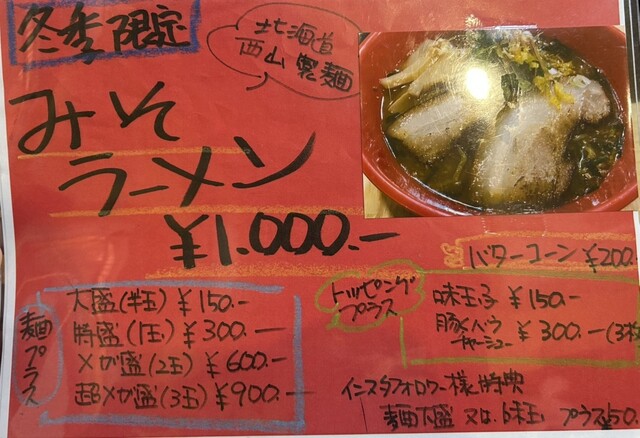 冬季限定
北海道
西山製麺
みそ
ラーメン
¥1.000.-
バターコーン ¥200.
麺プラス
大盛(半玉) ¥150.-
特盛(1玉) ¥300.-
メガ盛(2玉) ¥600.-
超メガ盛(3玉) ¥900.-
トッピング
プラス
味玉子 ¥150.-
豚バラ
チャーシュー ¥300.-(3枚
インスタフォロワー様特典
麺大盛 又は、味玉 プラス¥50